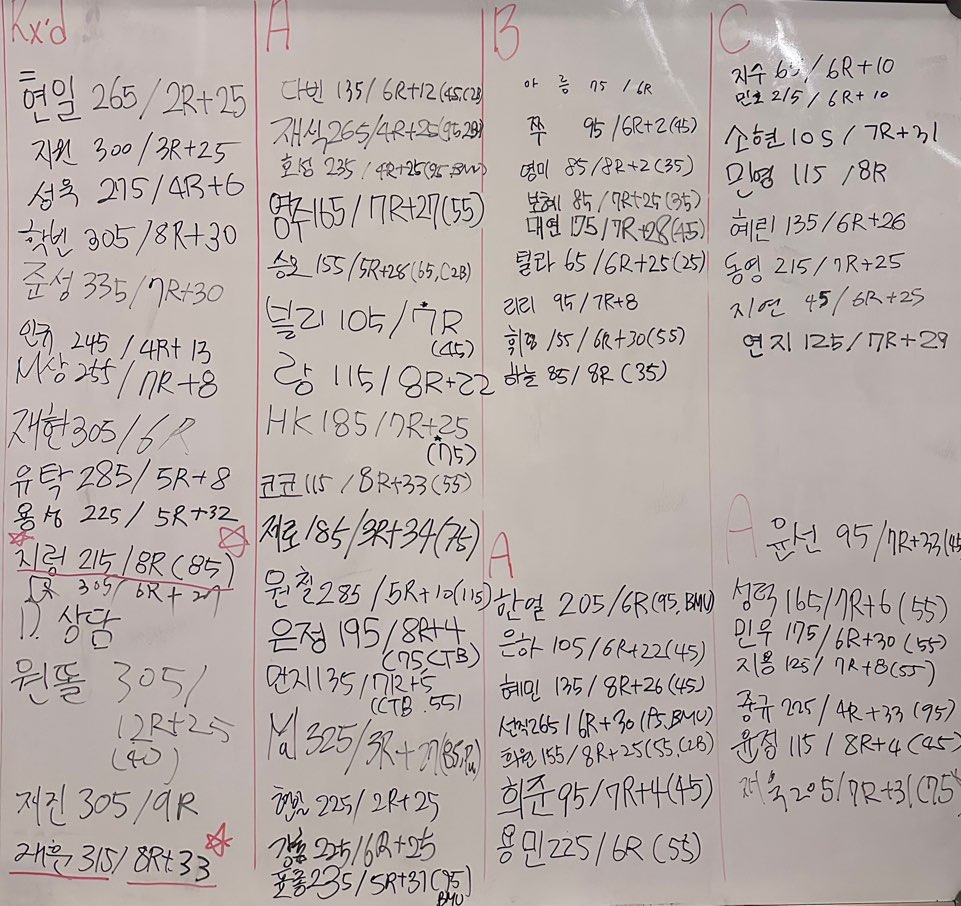 Rx'd
현일 265/2R+25
지원 300/3R+25
성욱 275/4R+6
학빈 305/8R+30
준성 335/7R+30
인규 245/4R+13
M상 255/7R+8
재현 305/6R
유탁 285/5R+8
용성 225/5R+32
지렁 215/8R(85)
305/6R+27
1). 상담
원똘 305/
12R+25
(40)
저진 305/9R
재훈 315/8R+33
A
다빈 135/6R+12(45,C2B)
재식 265/4R+25(95,2B)
호성 235/4R+25(95,BMU)
영주 165/7R+27(55)
승모 155/5R+28(65,C2B)
벌리 105/7R
(45)
랑 115/8R+22
HK 185/7R+25
(75)
코코 115/8R+33(55)
제로 185/9R+34(75)
원철 285/5R+10(115)
은정 195/8R+4
(75 CTB)
먼지 135/7R+5
(CTB.55)
325/3R+27
현빈 225/2R+25
강훈 225/6R+25
윤종 235/5R+31(95)
BMU
B
아름 75/6R
쭉 95/6R+2(45)
영미 85/8R+2(35)
보혜 85/7R+25(35)
대연 175/7R+28(45)
털라 65/6R+25(25)
리리 95/7R+8
휘경 155/6R+30(55)
하늘 85/8R(35)
A
한열 205/6R(95,BMU)
은하 105/6R+22(45)
혜민 135/8R+26(45)
선직 265/6R+30(95,BMU)
희원 155/8R+25(55,C2B)
희준 95/7R+4(45)
용민 225/6R(55)
C
지수 65/6R+10
민호 215/6R+10
소현 105/7R+31
민영 115/8R
혜린 135/6R+26
동영 215/7R+25
지연 45/6R+25
연지 125/7R+29
A
윤선 95/7R+33(45
성력 165/7R+6(55)
민우 175/6R+30(55)
지용 125/7R+8(55)
종규 225/4R+33(95)
윤정 115/8R+4(45)
재욱 205/7R+31(75)